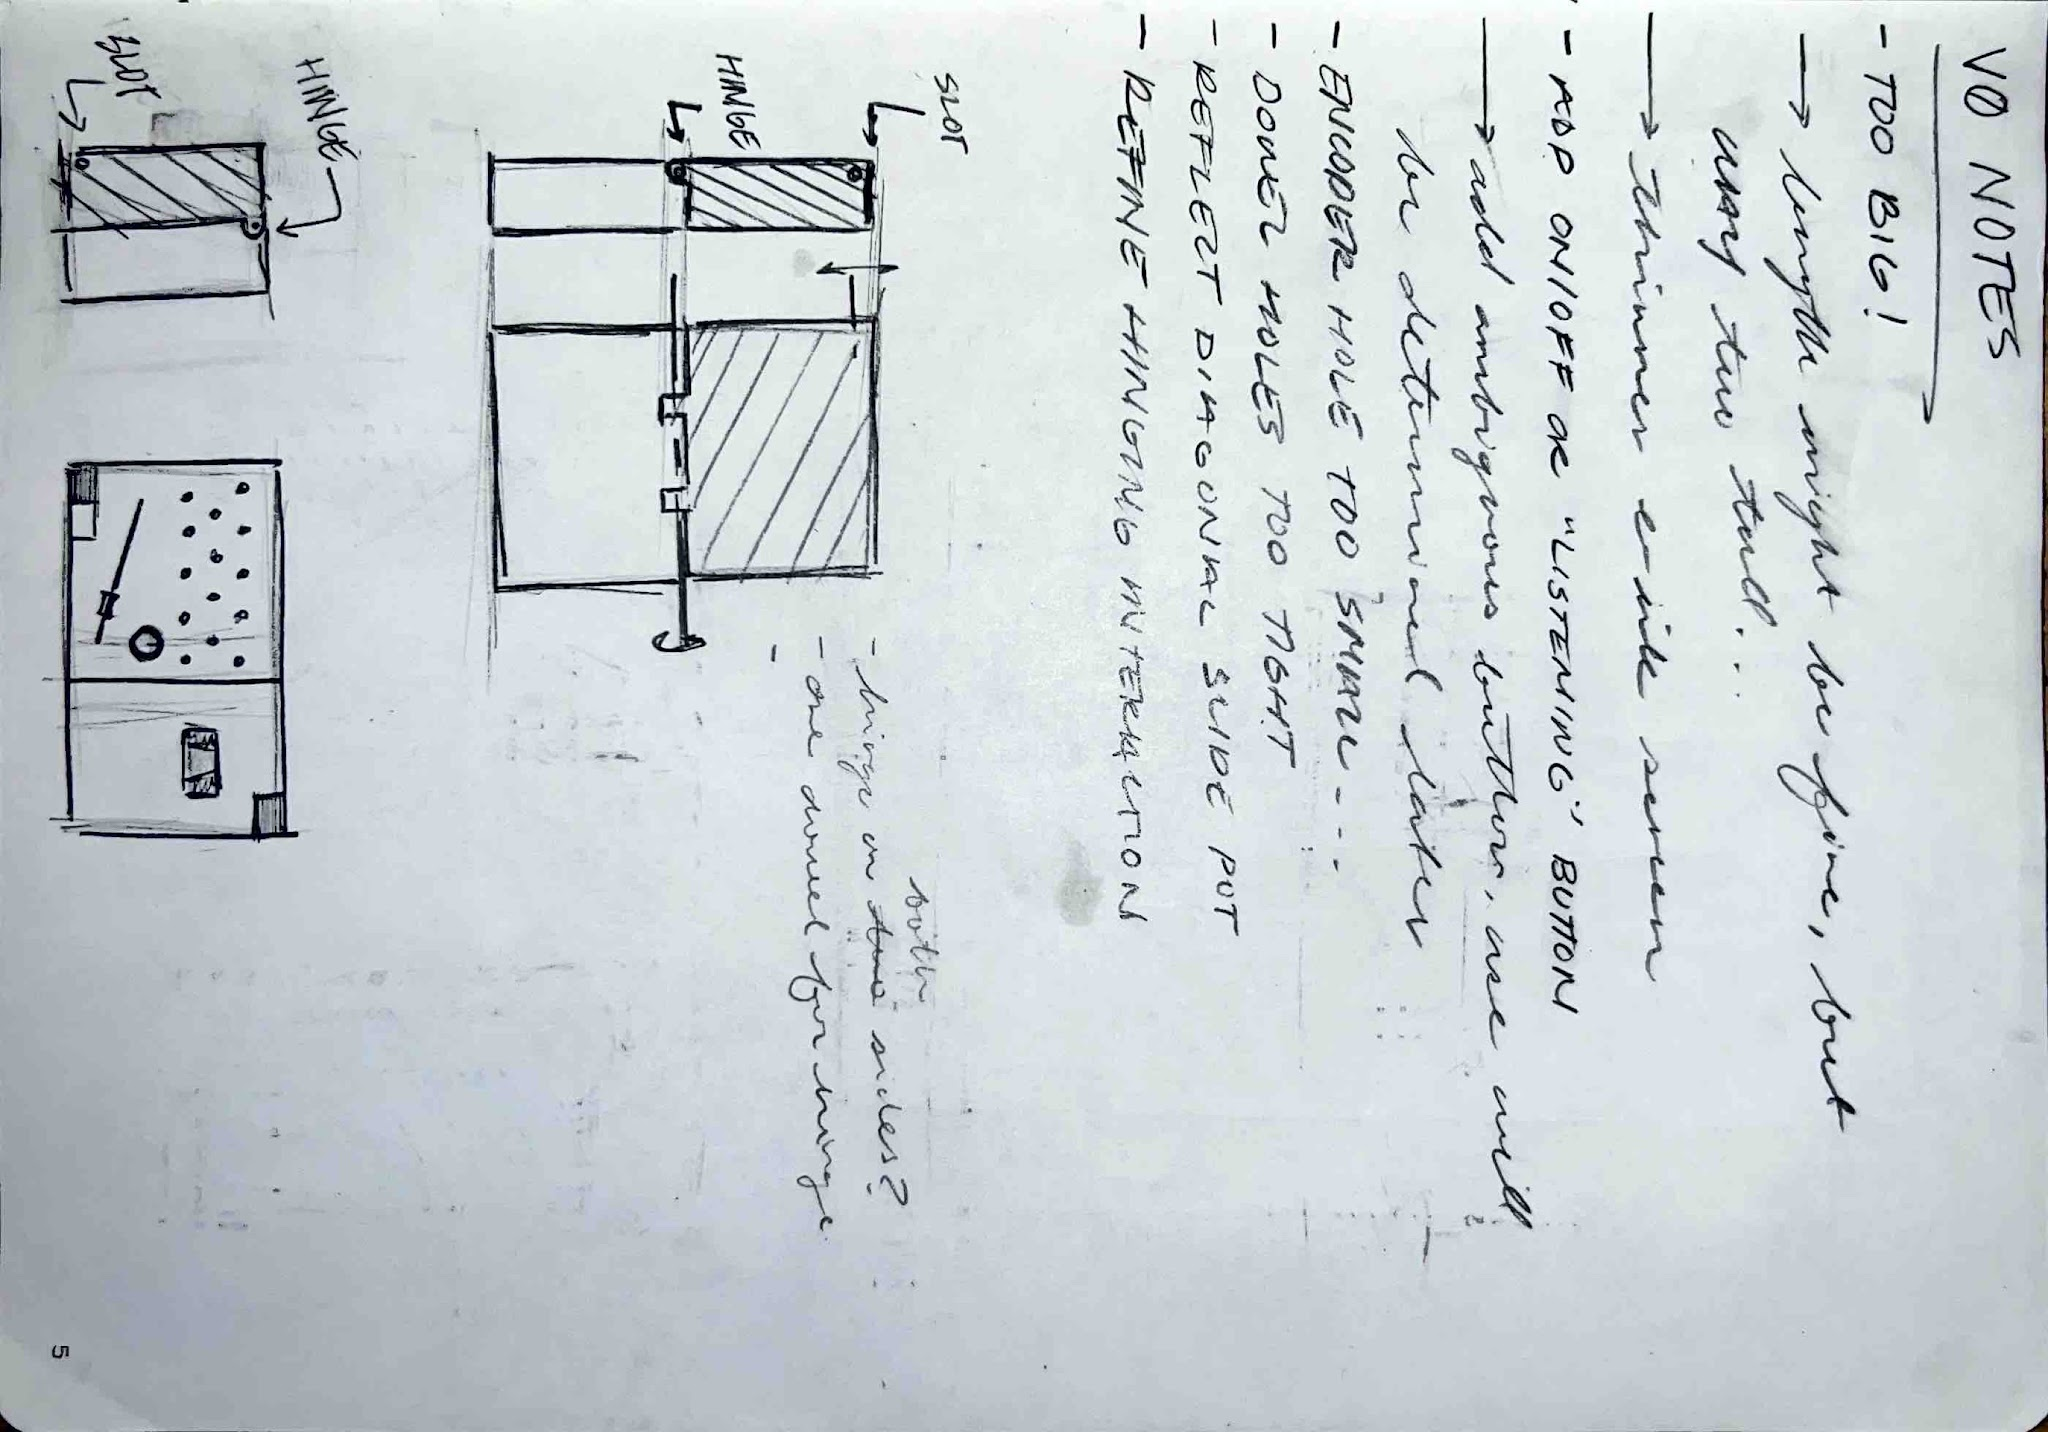 V0 NOTES
- TOO BIG!
→ length might be fine, but
way too tall...
→ thinner e-ink screen
- ADD ON/OFF OR "LISTENING" BUTTON
→ add ambiguous button, use will
be determined later
- ENCODER HOLE TOO SMALL...
- DOWEL HOLES TOO TIGHT
- REFLECT DIAGONAL SLIDE POT
- REFINE HINGING INTERACTION
SLOT
HINGE
both
- hinge on two sides?
- one dowel for hinge
-
HINGE
SLOT
5